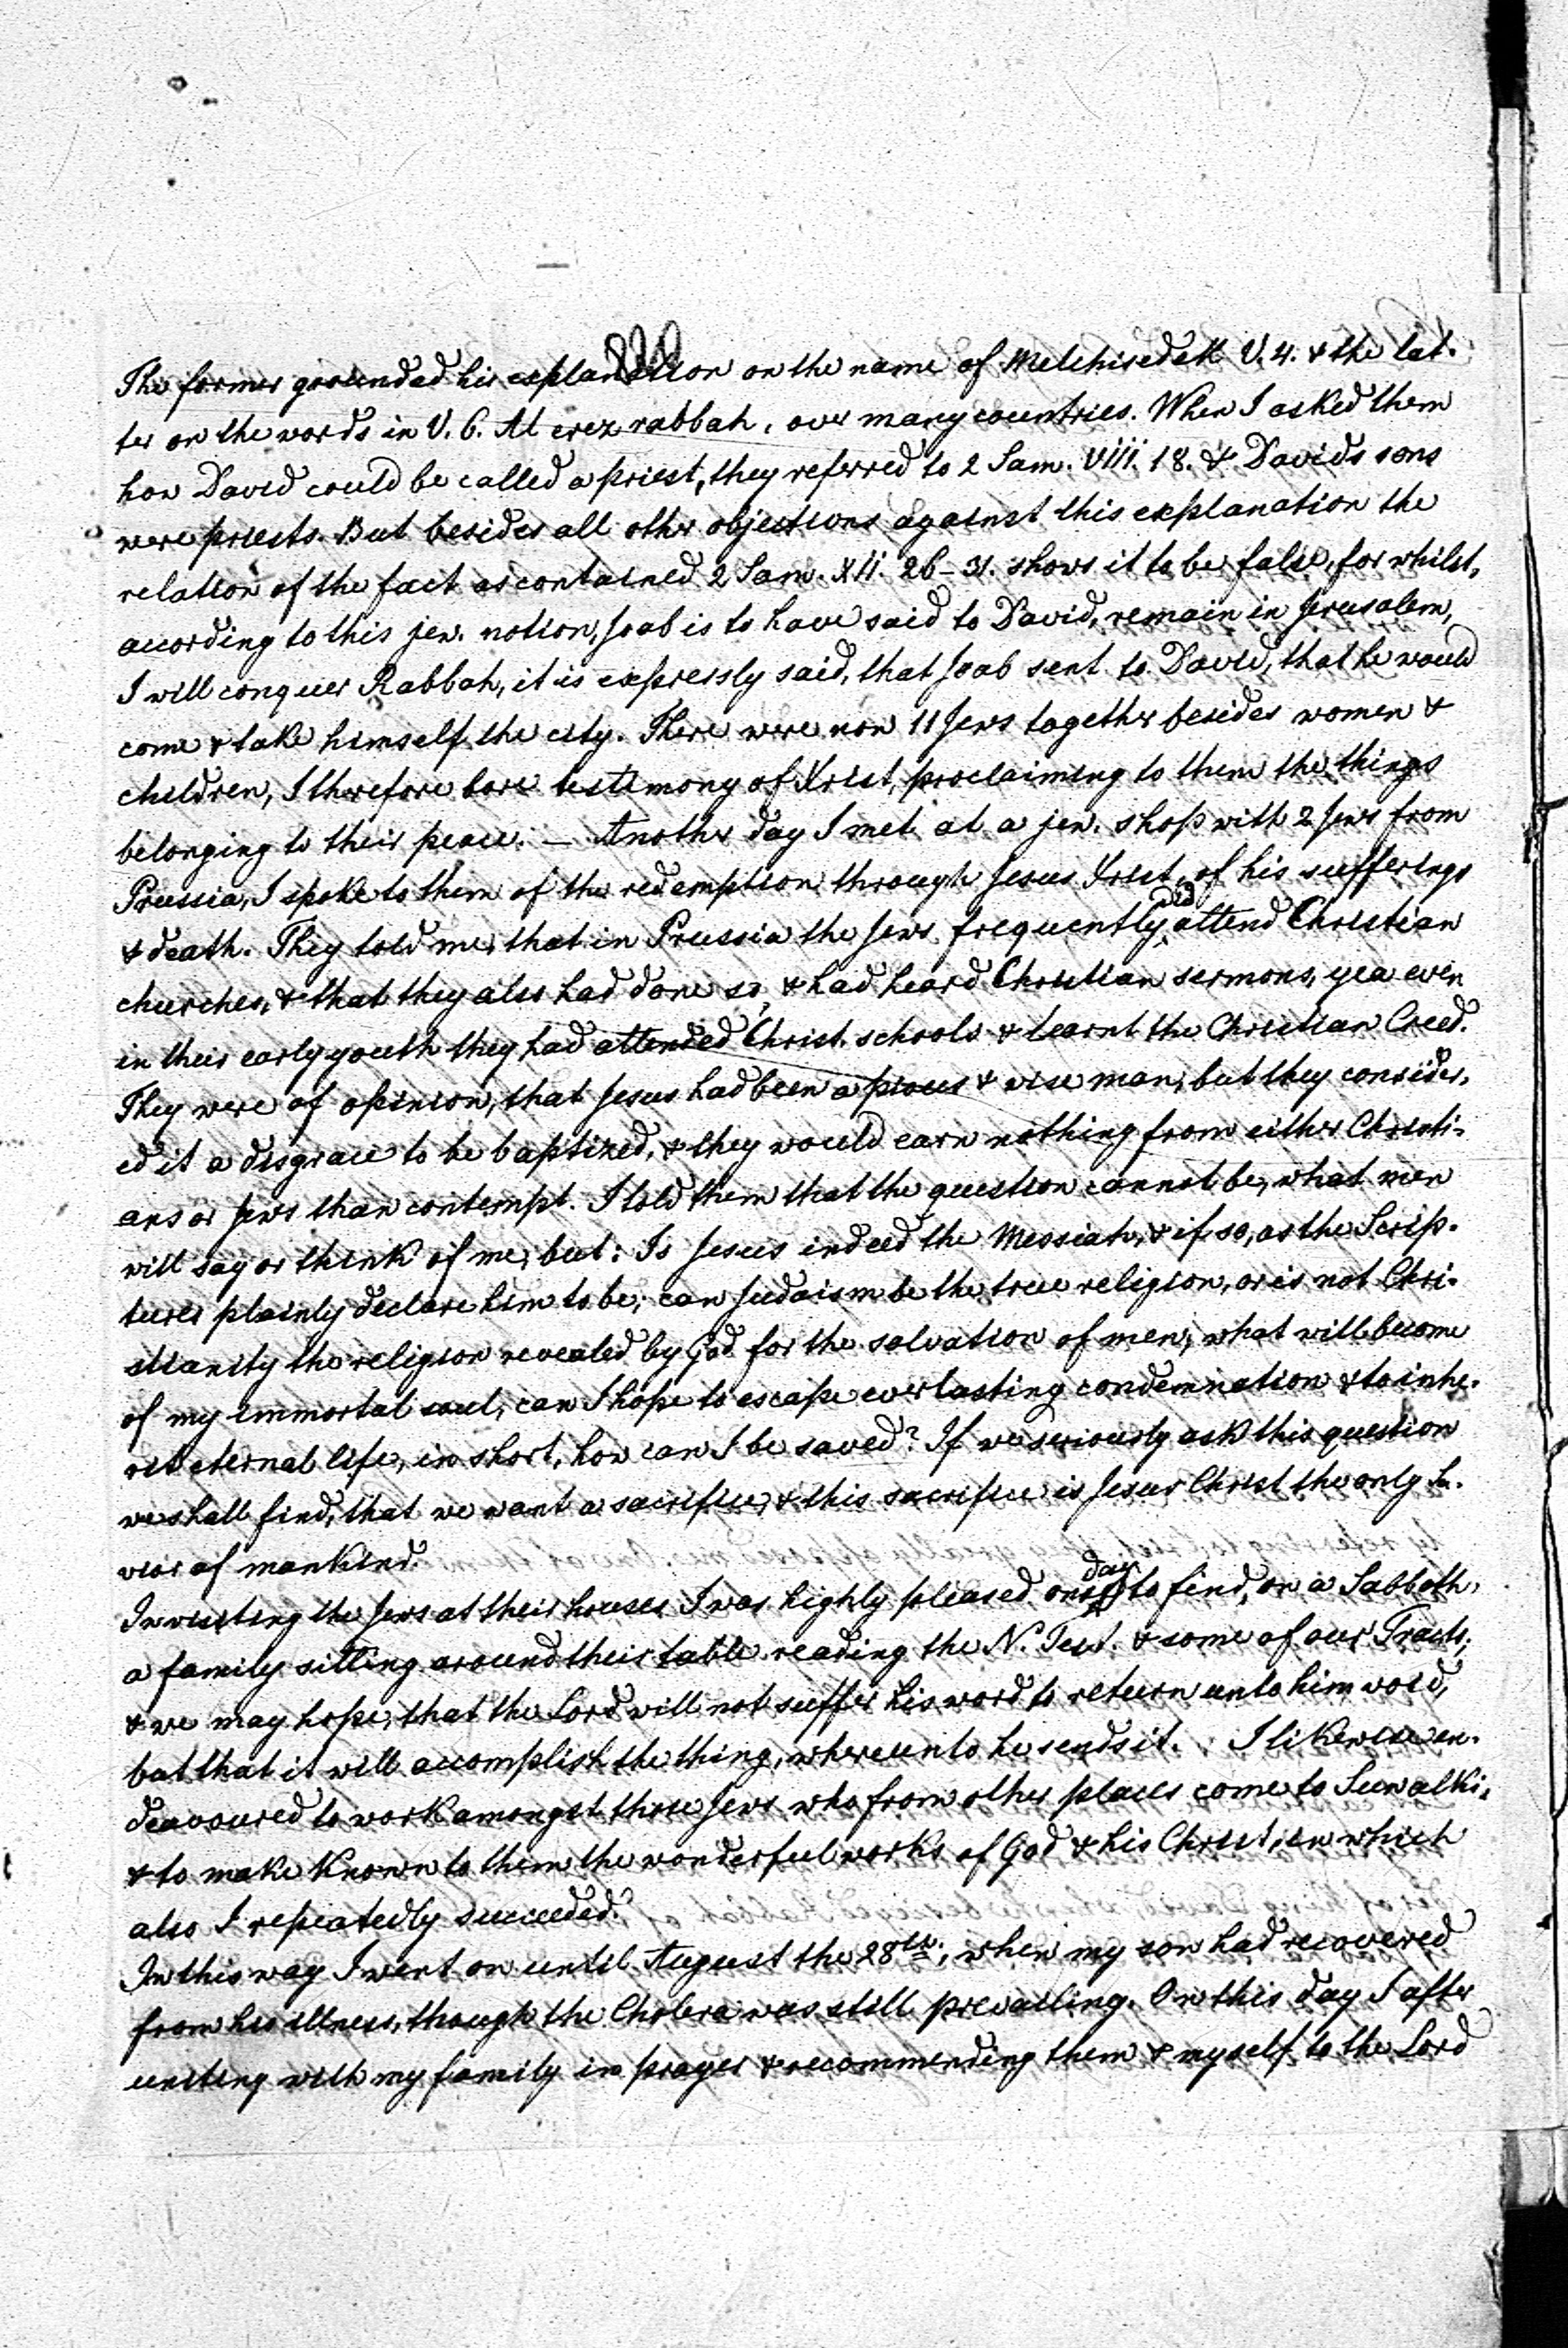 The former grounded his explanation on the name of Melchisedek V. 4. & the lat-
ter on the words in V. 6. Al erez rabbah, over many countries. When I asked them
how David could be called a priest, they referred to 2 Sam. VIII. 18. & Davids sons
were priests. But besides all other objections against this explanation the
relation of the fact as contained 2 Sam. XII. 26–31. shows it to be false, for whilst,
according to this jew. notion, Joab is to have said to David, remain in Jerusalem,
I will conquer Rabbah, it is expressly said, that Joab sent to David, that he would
come & take himself the city. There were now 11 Jews together besides women &
children, I therefore bore testimony of Xrist, proclaiming to them the things
belonging to their peace. — Another day I met at a jew. shop with 2 Jews from
Prussia, I spoke to them of the redemption through Jesus Xrist, of his sufferings
& death. They told me, that in Prussia the Jews frequently did attend Christian
churches, & that they also had done so, & had heard Christian sermons, yea even
in their early youth they had attended Christ. schools & learnt the Christian Creed.
They were of opinion, that Jesus had been a pious & wise man, but they consider-
ed it a disgrace to be baptized, & they would earn nothing from either Christi-
ans or Jews than contempt. I told them that the question cannot be, what men
will say or think of me, but: Is Jesus indeed the Messiah, & if so, as the Scrip-
tures plainly declare him to be, can Judaism be the true religion, or is not Chri-
stianity the religion revealed by God for the salvation of men, what will become
of my immortal soul, can I hope to escape everlasting condemnation & to inhe-
rit eternal life, in short, how can I be saved? If we seriously ask this question
we shall find, that we want a sacrifice, & this sacrifice is Jesus Christ the only Sa-
vior of mankind.
In visiting the Jews at their houses I was highly pleased one day to find, on a Sabbath,
a family sitting around their table reading the N. Test. & some of our Tracts;
& we may hope, that the Lord will not suffer his word to return unto him void,
but that it will accomplish the thing, whereunto he sends it. I likewise en-
deavoured to work amongst those Jews who from other places come to Suwalki,
& to make known to them the wonderful works of God & his Christ, in which
also I repeatedly succeeded.
In this way I went on until August the 28th, when my son had recovered
from his illness, though the Cholera was still prevailing. On this day I after
uniting with my family in prayer & recommending them & myself to the Lord